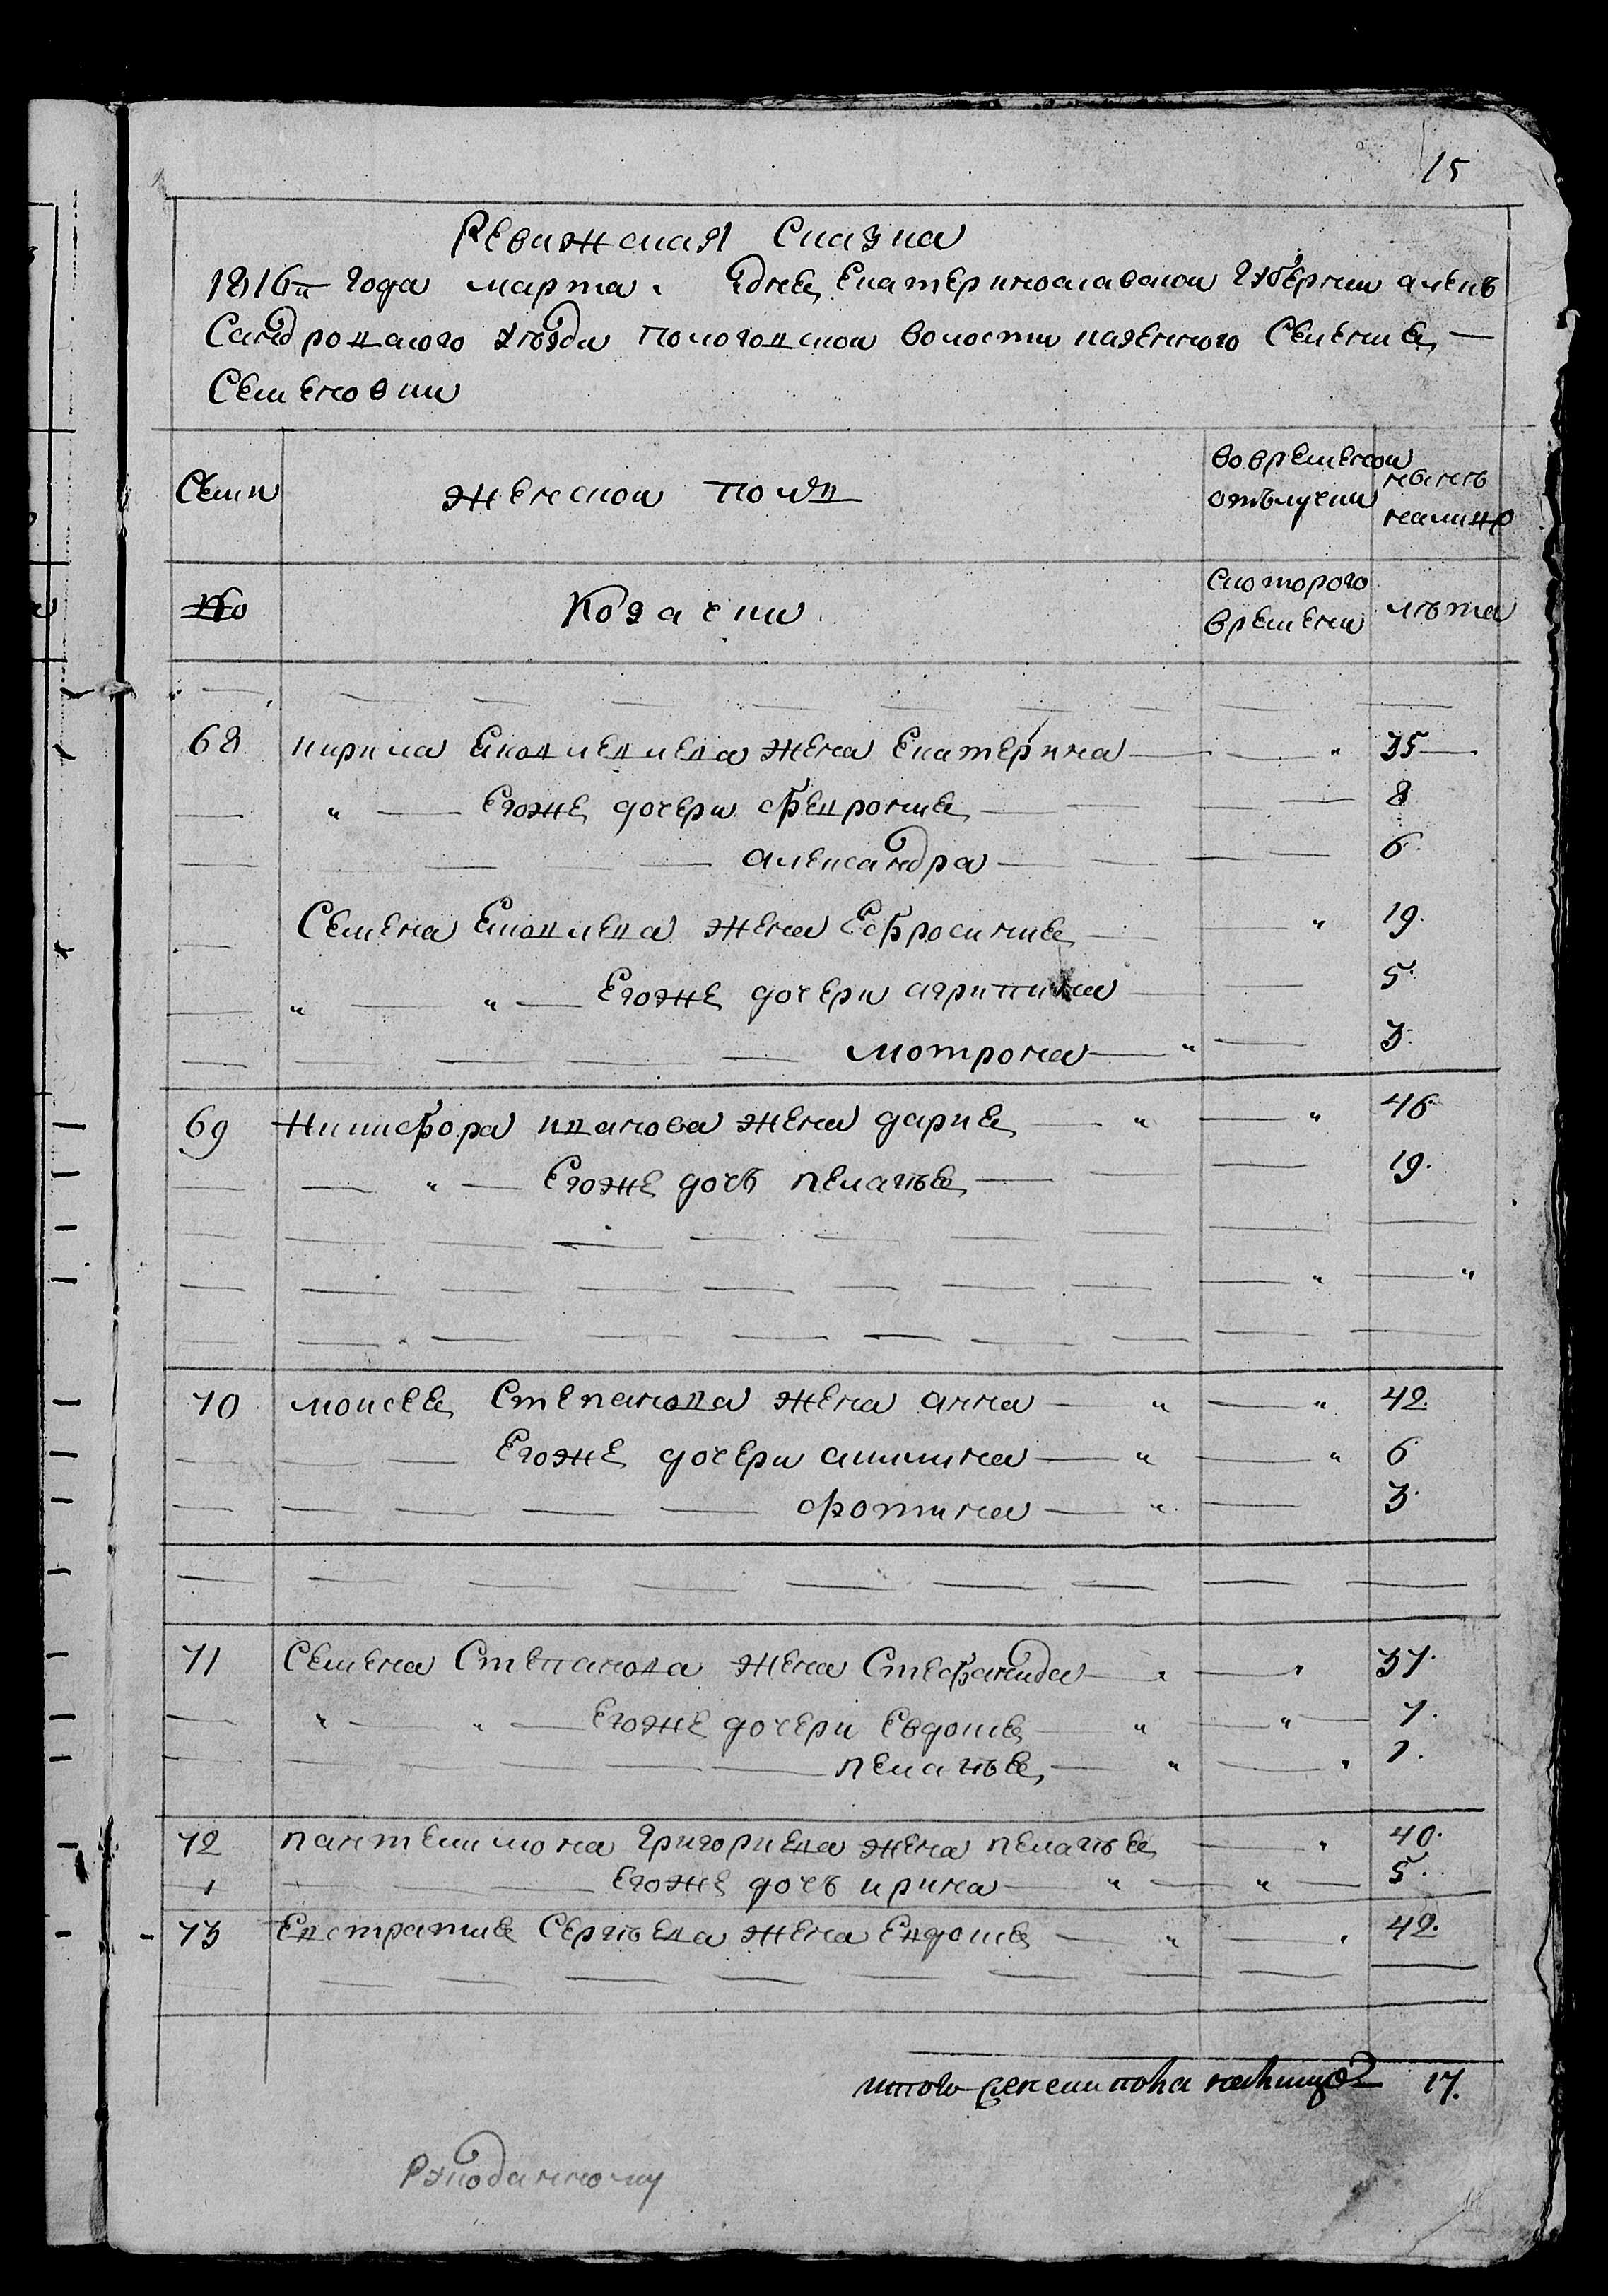 15
Ревижская Сказка
1816го года марта. дня Екатеринославской Губернии алекъ
Сандровского уѣзда Пологовской волости казенного Селения
Семеновки
Семи женской полъ во временной отълучки нынѣ налицо
No Козачки скоторого времени лѣта
68 кирила Яковлевлева жена Екатерина 35
Егоже дочери Феврония 8
александра 6
Семена Яковлева жена Ефросиния 19.
Егоже дочери агрипина 5.
мотрона 3.
69 Никифора иванова жена дария 46
Егоже дочь пелагѣя 19.
70 моисея Степанова жена анна 42.
Егоже дочери акилина 6
фотина 3.
71 Семена Степанова жена Стефанида 37.
Егоже дочери Евдокия 7.
пелагѣя 1.
72 пантелимона григориева жена пелагѣя 40.
Егоже дочь ирина 5.
73 Евстратия Сергѣева жена Евдокия 42.
итого женска пола налицо 17.